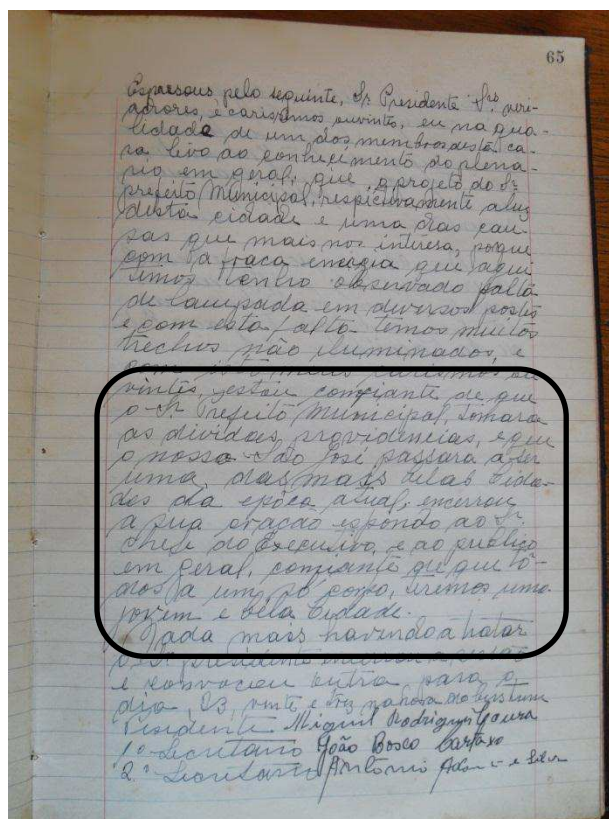 65
Espresous pelo seguinte, Sr. Presidente Srs. veri-
adrores, e carissimos ouvintes, eu na qua-
lidade de um dos membros desta ca-
sa levo ao conhecimento do plena-
rio em geral, que o projeto do Sr.
prefeito Municipal, respectivamente a luz
desta cidade e uma das cau-
sas que mais nos interesa, porque
com a fraca energia que aqui
temos tenho observado falta
de lampada em diversos postes
e com esta falta temos muitos
trechos não iluminados, e
carismos ou-
vintes, estou confiante de que
o Sr. Prefeito Municipal, tomara
as dividas providencias, e que
o nosso São José passara a ser
uma das mais belas cida-
des da epóca atual, encerrou
a sua oração espondo ao Sr.
chefe do Executivo, e ao publico
em geral, comfiante de que tô-
dos a um só corpo, teremos uma
jovem e bela cidade.
Nada mais havendo a tratar
o Sr. presidente
e convocou outra para o
dia, 23, vinte e trez na hora do custume
Presidente Miguel Rodrigues
1º Secretario João Bosco Cartaxo
2º Secretario Antonio e Silva